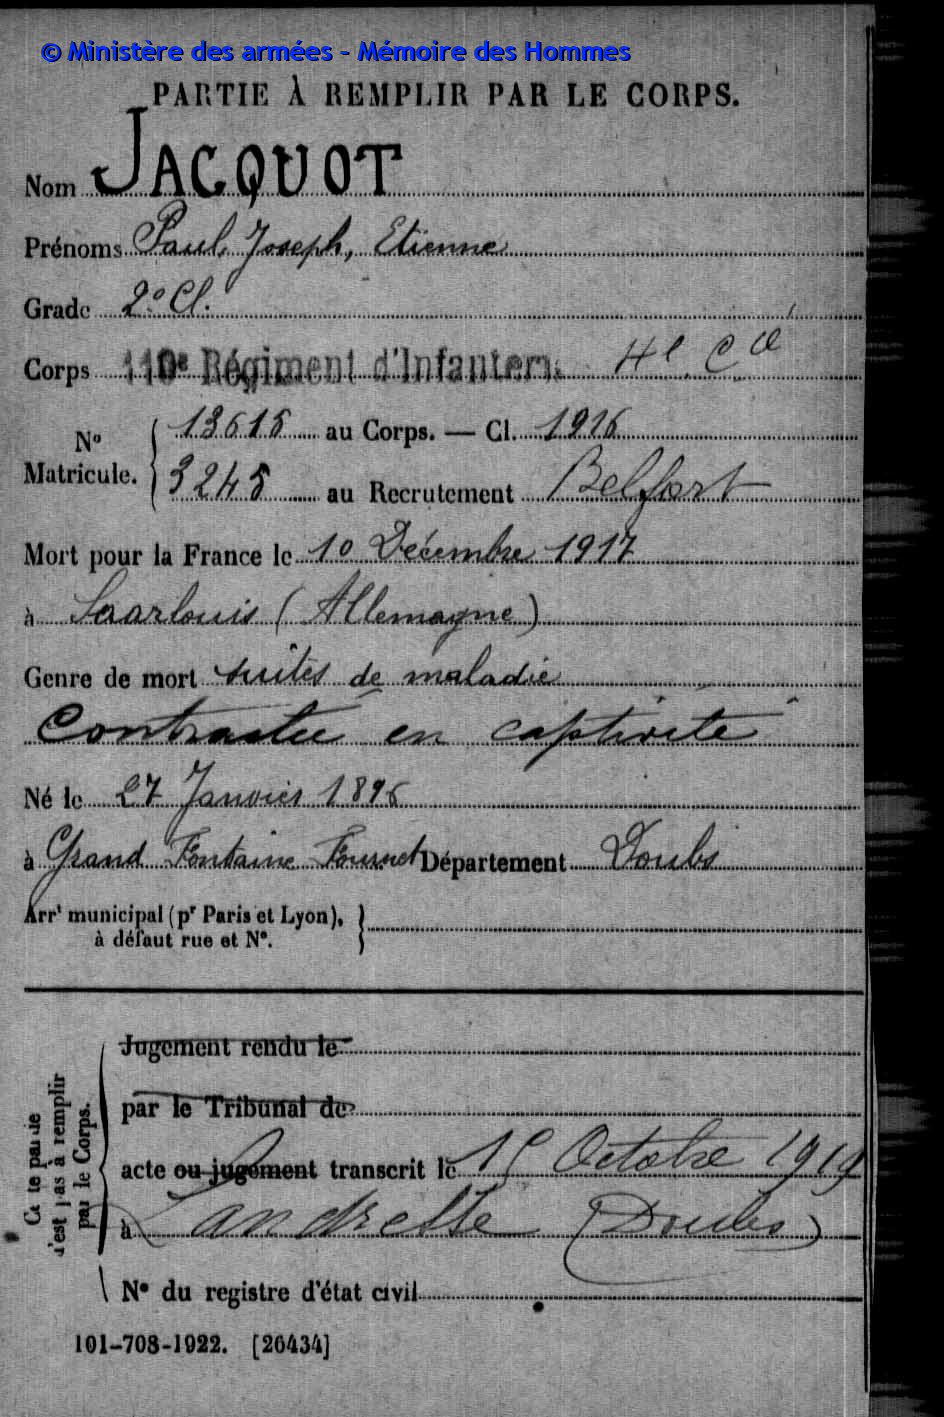 © Ministère des armées - Mémoire des Hommes
PARTIE À REMPLIR PAR LE CORPS.
Nom JACQUOT
Prénoms Paul, Joseph, Etienne
Grade 2e Cl.
Corps 110e Régiment d'Infanterie
No Matricule. 13615 au Corps. — Cl. 1916
3245 au Recrutement Belfort
Mort pour la France le 10 Décembre 1917
à Saarlouis (Allemagne)
Genre de mort suites de maladie
Contractée en captivité
Né le 27 Janvier 1896
à Grand Fontaine Fournet Département Doubs
Arrt municipal (pr Paris et Lyon),
à défaut rue et No.
Cette partie
n'est pas à remplir
par le Corps.
Jugement rendu le
par le Tribunal de
acte ou jugement transcrit le 15 Octobre 1919
à Landresse (Doubs)
No du registre d'état civil
101-708-1922. [26434]